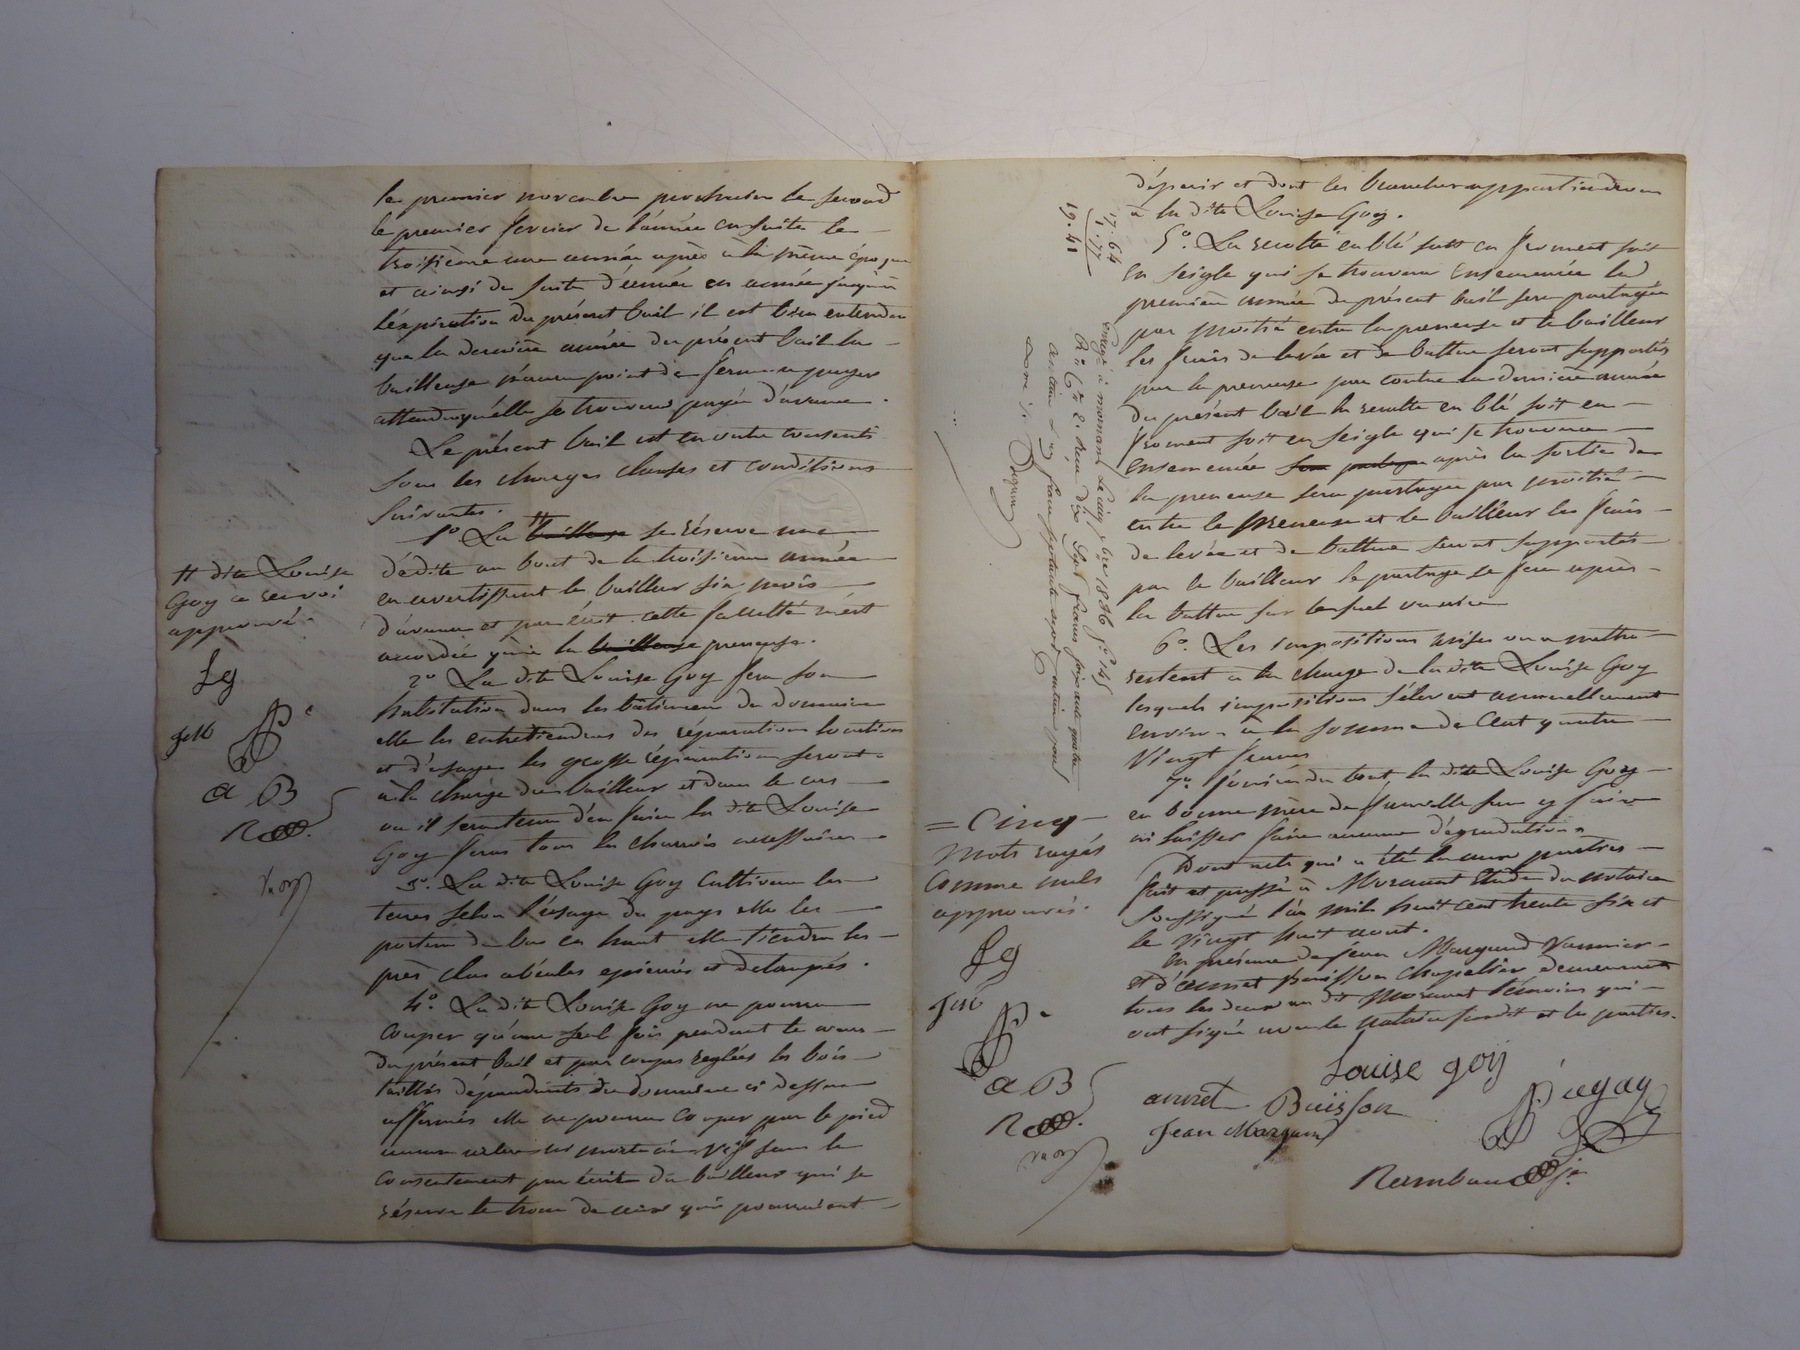 le premier novembre prochain le second
le premier fevrier de l'année en suite le
troisième une année après à la même époque
et ainsi de suite d'année en année jusqu'à
l'expiration du présent bail il est bien entendu
que la dernière année du présent bail la
bailleuse n'aura point de ferme a payer
attendu qu'elle se trouvera payée d'avance.
Le présent bail est en outre consenti
sous les charges clauses et conditions
suivantes.
1o La # bailleuse se réserve une
dédite au bout de la troisième année
en avertissant le bailleur six mois
d'avance et par écrit. cette faculté n'est
accordée qu'à la bailleuse preneuse.
2o La dite Louise Goy fera son
habitation dans les bâtiments du domaine
elle les entretiendra des réparations locatives
et d'usage les grosses réparations seront
à la charge du bailleur et dans le cas
ou il sera tenu d'en faire la dite Louise
Goy fera tous les charrois nécessaires
3o. La dite Louise Goy cultivera les
terres selon l'usage du pays elle les
portera de bas en haut elle tiendra les
prés clos abéalés épierrés et détaupés.
4o. La dite Louise Goy ne pourra
couper qu'une seul fois pendant le cours
du présent bail et par coupes reglées les bois
taillis dépendants du domaine ci dessus
affermés elle ne pourra couper par le pied
aucun arbre ni mort ni vif sans le
consentement par écrit du bailleur qui se
réserve le tronc de ceux qui pourraient
# dite Louise
Goy ce renvoi
approuvé.
Lg
JM
P.
a B
R
dépérir et dont les branches appartiendront
à la dite Louise Goy.
5o. La recolte en blé soit en froment soit
en seigle qui se trouvera ensemencée la
premiere année du présent bail sera partagée
par moitié entre la preneuse et le bailleur
les frais de levée et de batture seront supportés
par la preneuse par contre la dernière année
du présent bail la recolte en blé soit en
froment soit en seigle qui se trouvera
ensemencée sera partagée après la sortie de
la preneuse sera partagée par moitié
entre la preneuse et le bailleur les frais
de levée et de batture seront supportés
par le bailleur le partage se fera après
la batture sur le
6o. Les impositions mises ou a mettre
restent à la charge de la dite Louise Goy
lesquels impositions s'élèvent annuellement
environ à la somme de Cent quatre
Vingt francs
7o. Jouira du tout la dite Louise Goy
en bonne mère de famille sans y faire
ni laisser faire aucune dégradations
Dont acte qui a été lu aux parties
fait et passé à Mornant Etude du notaire
soussigné l'an mil huit cent trente six et
le vingt huit aout.
En présence de Jean Margand Vannier
et d'annet Buisson Chapelier demeurant
tous les deux au dit Mornant témoins qui
ont signé avec le notaire susdit et les parties.
Louise goy
annet Buisson
Jean Margand
Pagay
Rambaud Jne
= Cinq
mots rayés
comme nuls
approuvés.
Lg
JM
P.
a B
R
17. 64
1. 77
19. 41
Enregé à mornant Le cinq 7bre 1836 fo 145
Ro Cn 2. Reçu dix Sept francs soixante quatre
centimes un franc soixante dix sept centimes pour